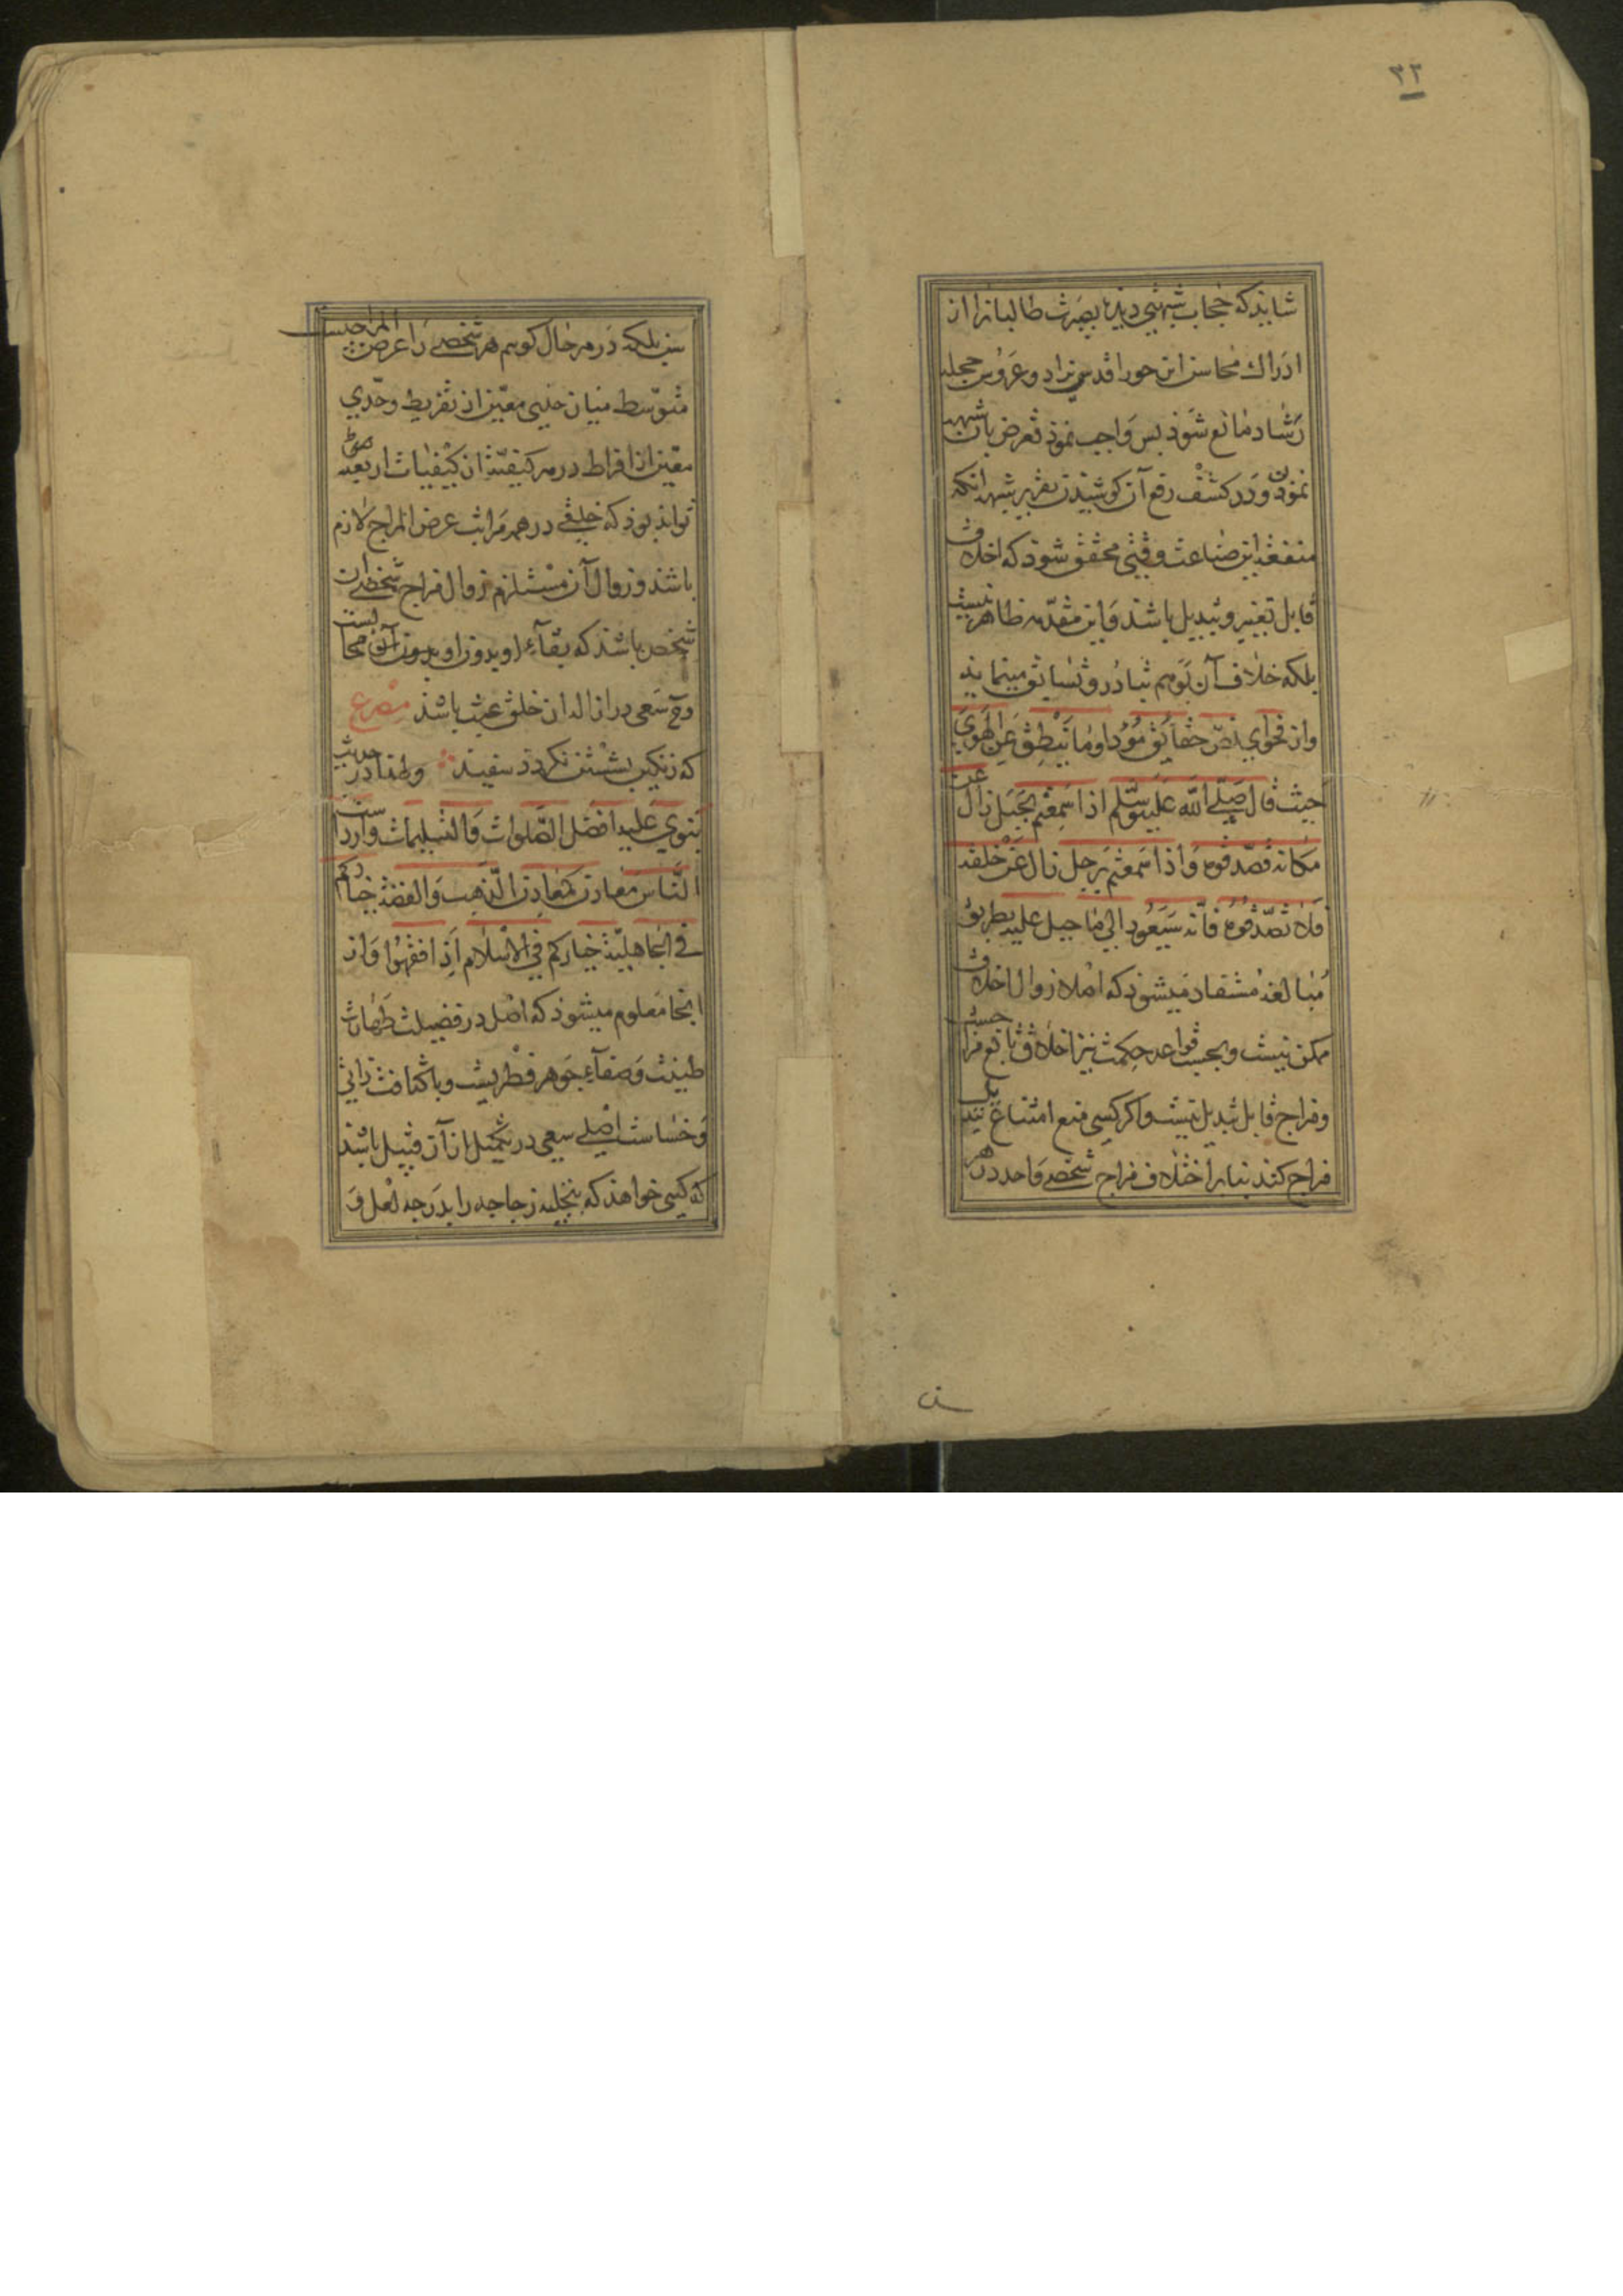 ۳۲
شایذ که حجاب شبهتی دیده بصیرت طالبانرا از
ادراک محاسن این حورا قدسی نژاد و عروس حجله
رشاد مانع شوذ بس واجب نموذ تعرض بان شبهه
نموذن و در کشف رفع آن کوشیذن تقریر شبهه انکه
منفعت این صناعت وقتی محقق شوذ که اخلاق
قابل تغییر و تبدیل باشد و این مقدمه ظاهر نیست
بلکه خلاف آن بوهم تبادر و تسابق مینمایذ
و از فحوای نص حقایق مؤدا وما ینطق عن الهوی
حیث قال صلی الله علیه وسلم اذا سمعتم بجبل زال عن
مکانه فصدقوه واذا سمعتم برجل زال عن خلقه
فلا تصدقوه فانه سیعود الی ما جبل علیه بطریق
مبالغه مستفاد میشوذ که اصلا زوال اخلاق
ممکن نیست و بحسب قواعد حکمت نیز اخلاق تابع مزاجست
و مزاج قابل تبدیل نیست و اکر کسی منع امتناع
مزاج کند بنابر اختلاف مزاج شخصی واحد در هر
سن بلکه در هر حال کوییم هر شخصی را عرض المزاجیست
متوسط میان حدی معین از تفریط و حدی
معین از افراط در هر کیفیت از کیفیات اربعه
تواند بوذ که خلقی در همه مراتب عرض المزاج لازم
باشذ و زوال آن مستلزم زوال مزاج شخصی ان
شخص باشذ که بقاء او بدون او بدون آن محالست
و سعی در ازاله ان خلق عبث باشذ مصرع
که زنکی بشستن نکردذ سفید وطنا در حدیث
نبوی علیه افضل الصلوات والتسلیمات واردست
الناس معادن کمعادن الذهب والفضة خیارکم
فی الجاهلیة خیارکم فی الاسلام اذا فقهوا و از
اینجا معلوم میشوذ که اصل در فضیلت طهارت
طینت و صفاء جوهر فطریست و با کثافت ذاتی
و خساست اصلی سعی در تکمیل از آن قبیل باشذ
که کسی خواهذ که بتجلیه زجاجه را بدرجه لعل و